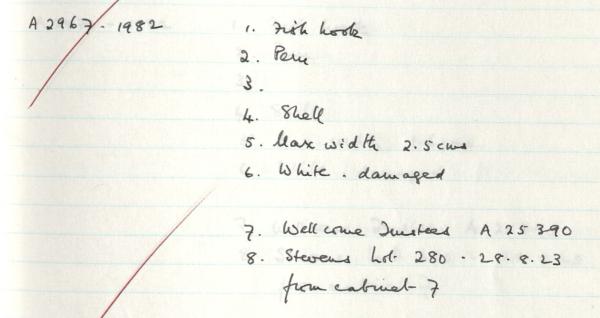 A 2967 - 1982
1. Fish hook
2. Peru
3.
4. Shell
5. Max width 2.5 cms
6. White . damaged
7. Wellcome Trustees A 25390
8. Stevens Lot 280 - 28.8.23
from cabinet 7